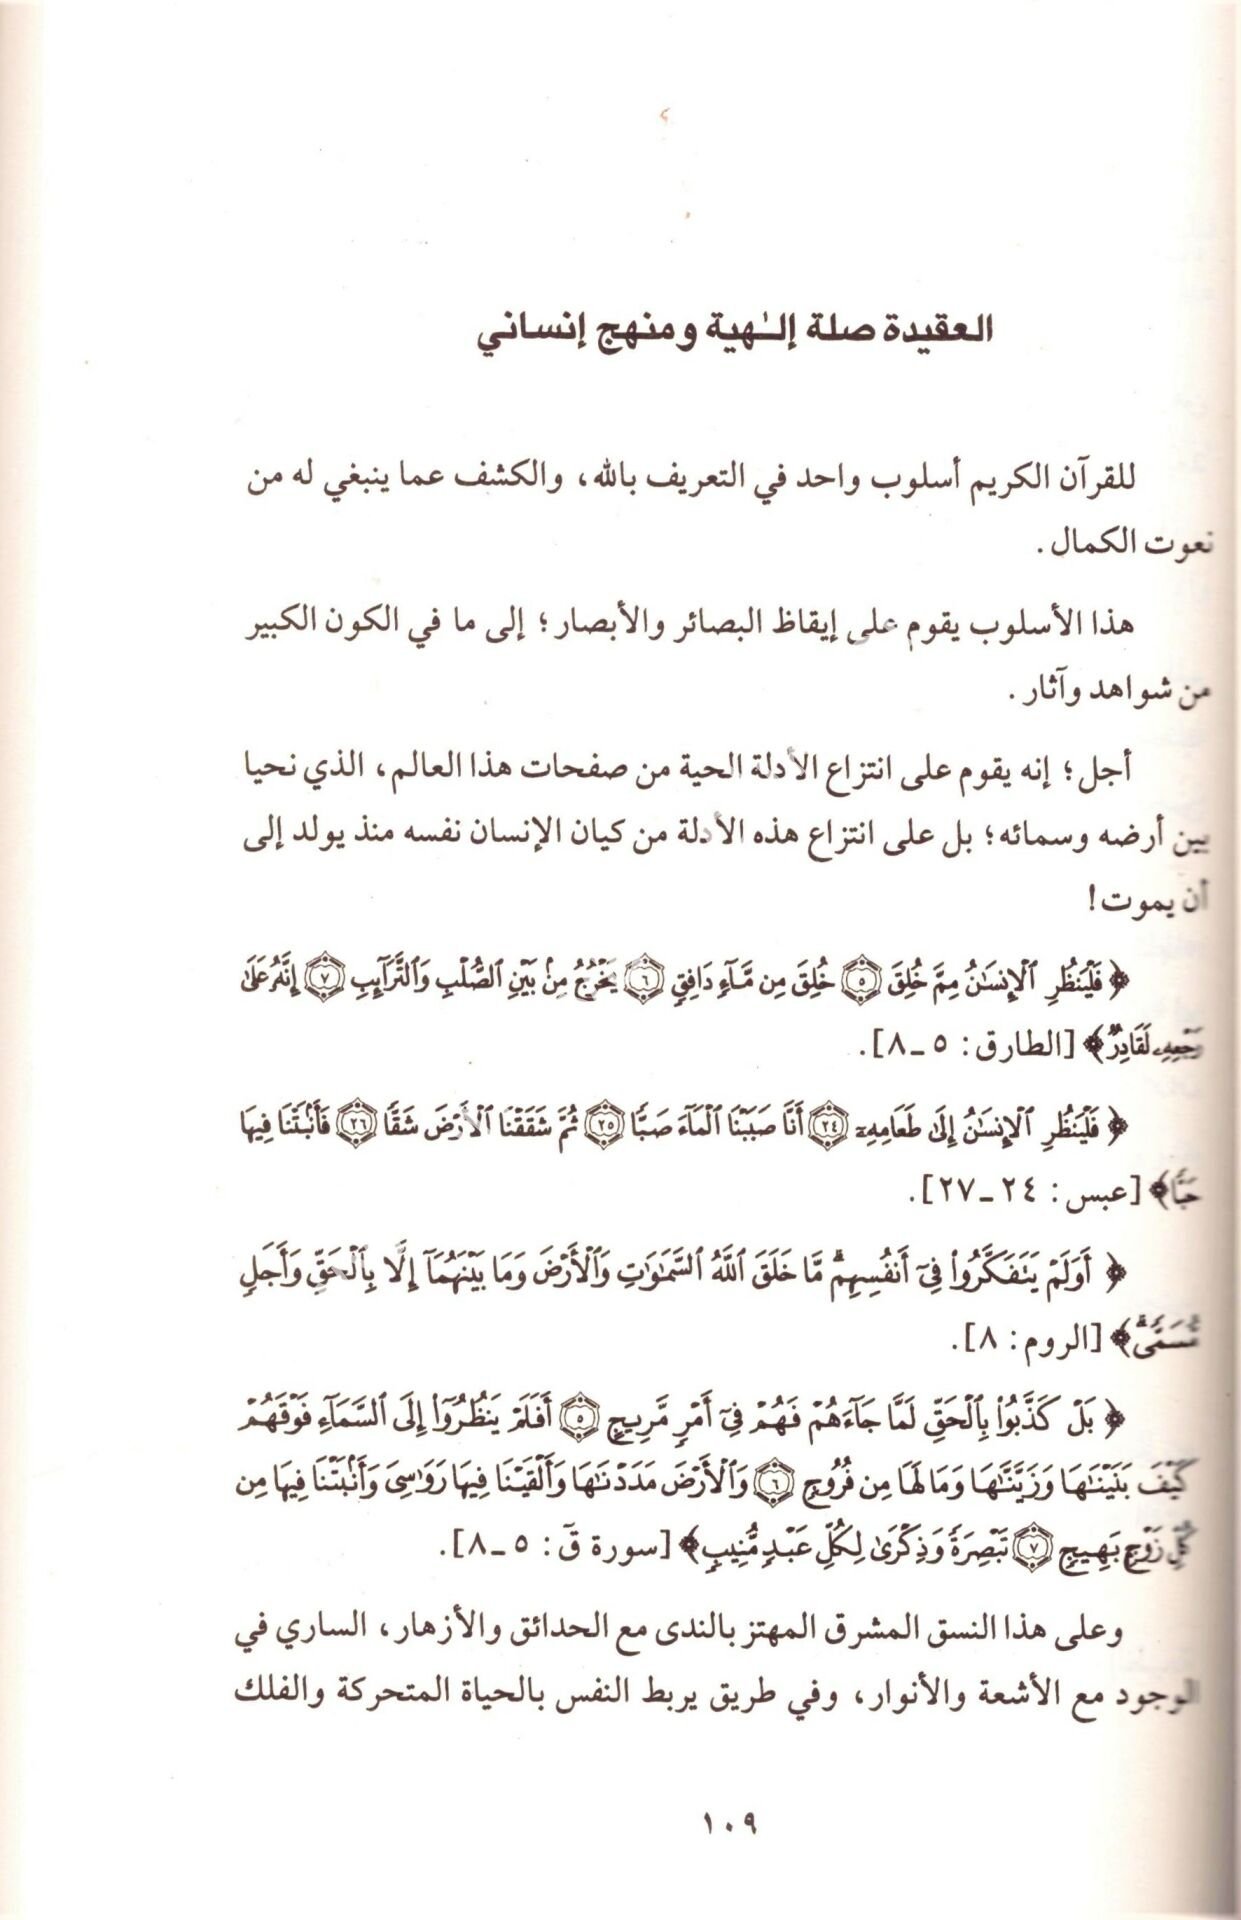 العقيدة صلة إلـٰهية ومنهج إنساني
للقرآن الكريم أسلوب واحد في التعريف بالله، والكشف عما ينبغي له من
نعوت الكمال.
هذا الأسلوب يقوم على إيقاظ البصائر والأبصار؛ إلى ما في الكون الكبير
من شواهد وآثار.
أجل؛ إنه يقوم على انتزاع الأدلة الحية من صفحات هذا العالم، الذي نحيا
بين أرضه وسمائه؛ بل على انتزاع هذه الأدلة من كيان الإنسان نفسه منذ يولد إلى
أن يموت!
﴿ فَلْيَنظُرِ ٱلْإِنسَٰنُ مِمَّ خُلِقَ ۝٥ خُلِقَ مِن مَّآءٍ دَافِقٍ ۝٦ يَخْرُجُ مِنۢ بَيْنِ ٱلصُّلْبِ وَٱلتَّرَآئِبِ ۝٧ إِنَّهُۥ عَلَىٰ
رَجْعِهِۦ لَقَادِرٌ﴾ [الطارق: ٥ ـ ٨].
﴿ فَلْيَنظُرِ ٱلْإِنسَٰنُ إِلَىٰ طَعَامِهِۦٓ ۝٢٤ أَنَّا صَبَبْنَا ٱلْمَآءَ صَبًّا ۝٢٥ ثُمَّ شَقَقْنَا ٱلْأَرْضَ شَقًّا ۝٢٦ فَأَنۢبَتْنَا فِيهَا
حَبًّا﴾ [عبس: ٢٤ ـ ٢٧].
﴿ أَوَلَمْ يَتَفَكَّرُوا۟ فِىٓ أَنفُسِهِم ۗ مَّا خَلَقَ ٱللَّهُ ٱلسَّمَٰوَٰتِ وَٱلْأَرْضَ وَمَا بَيْنَهُمَآ إِلَّا بِٱلْحَقِّ وَأَجَلٍ
مُّسَمًّى ۗ﴾ [الروم: ٨].
﴿ بَلْ كَذَّبُوا۟ بِٱلْحَقِّ لَمَّا جَآءَهُمْ فَهُمْ فِىٓ أَمْرٍ مَّرِيجٍ ۝٥ أَفَلَمْ يَنظُرُوٓا۟ إِلَى ٱلسَّمَآءِ فَوْقَهُمْ
كَيْفَ بَنَيْنَٰهَا وَزَيَّنَّٰهَا وَمَا لَهَا مِن فُرُوجٍ ۝٦ وَٱلْأَرْضَ مَدَدْنَٰهَا وَأَلْقَيْنَا فِيهَا رَوَٰسِىَ وَأَنۢبَتْنَا فِيهَا مِن
كُلِّ زَوْجٍۭ بَهِيجٍ ۝٧ تَبْصِرَةً وَذِكْرَىٰ لِكُلِّ عَبْدٍ مُّنِيبٍ﴾ [سورة قَ: ٥ ـ ٨].
وعلى هذا النسق المشرق المهتز بالندى مع الحدائق والأزهار، الساري في
الوجود مع الأشعة والأنوار، وفي طريق يربط النفس بالحياة المتحركة والفلك
١٠٩